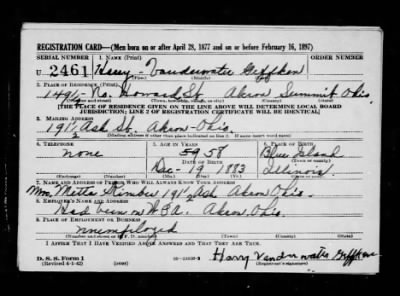 REGISTRATION CARD—(Men born on or after April 28, 1877 and on or before February 16, 1897)
SERIAL NUMBER 1. NAME (Print) ORDER NUMBER
U 2461 Harry Vanderwater Geffken
(First) (Middle) (Last)
2. PLACE OF RESIDENCE (Print)
149½ No. Howard St. Akron Summit Ohio
(Number and street) (Town, township, village, or city) (County) (State)
[THE PLACE OF RESIDENCE GIVEN ON THE LINE ABOVE WILL DETERMINE LOCAL BOARD
JURISDICTION; LINE 2 OF REGISTRATION CERTIFICATE WILL BE IDENTICAL]
3. MAILING ADDRESS
191 Ash St. Akron-Ohio.
(Mailing address if other than place indicated on line 2. If same insert word same)
4. TELEPHONE 5. AGE IN YEARS 6. PLACE OF BIRTH
none 59 58 Blue Island
DATE OF BIRTH
Dec- 19 1883 Illinois
(Exchange) (Number) (Mo.) (Day) (Yr.) (State or country)
7. NAME AND ADDRESS OF PERSON WHO WILL ALWAYS KNOW YOUR ADDRESS
Mrs. Metta 191 Ash Akron Ohio
8. EMPLOYER'S NAME AND ADDRESS
Had been on W.P.A. Akron, Ohio.
9. PLACE OF EMPLOYMENT OR BUSINESS
unemployed
(Number and street or R. F. D. number) (Town) (County) (State)
I AFFIRM THAT I HAVE VERIFIED ABOVE ANSWERS AND THAT THEY ARE TRUE.
D. S. S. Form 1
(Revised 4-1-42) (over) Harry Vanderwater Geffken
(Registrant's signature)